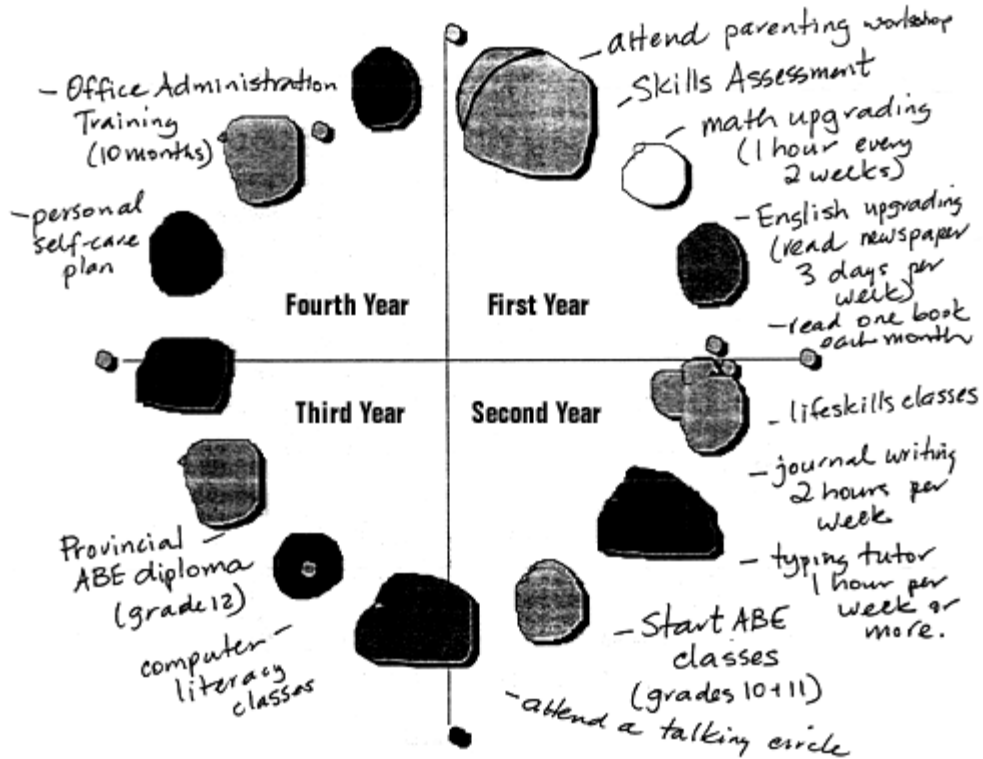 - attend parenting workshop
- Skills Assessment
- math upgrading
(1 hour every
2 weeks)
- English upgrading
(read newspaper
3 days per
week)
- read one book
each month
First Year
Second Year
- lifeskills classes
- journal writing
2 hours per
week
- typing tutor
1 hour per
week or
more.
- Start ABE
classes
(grades 10+11)
- attend a talking circle
Third Year
computer
literacy
classes
Provincial
ABE diploma
(grade 12)
Fourth Year
- personal
self-care
plan
- Office Administration
Training
(10 months)